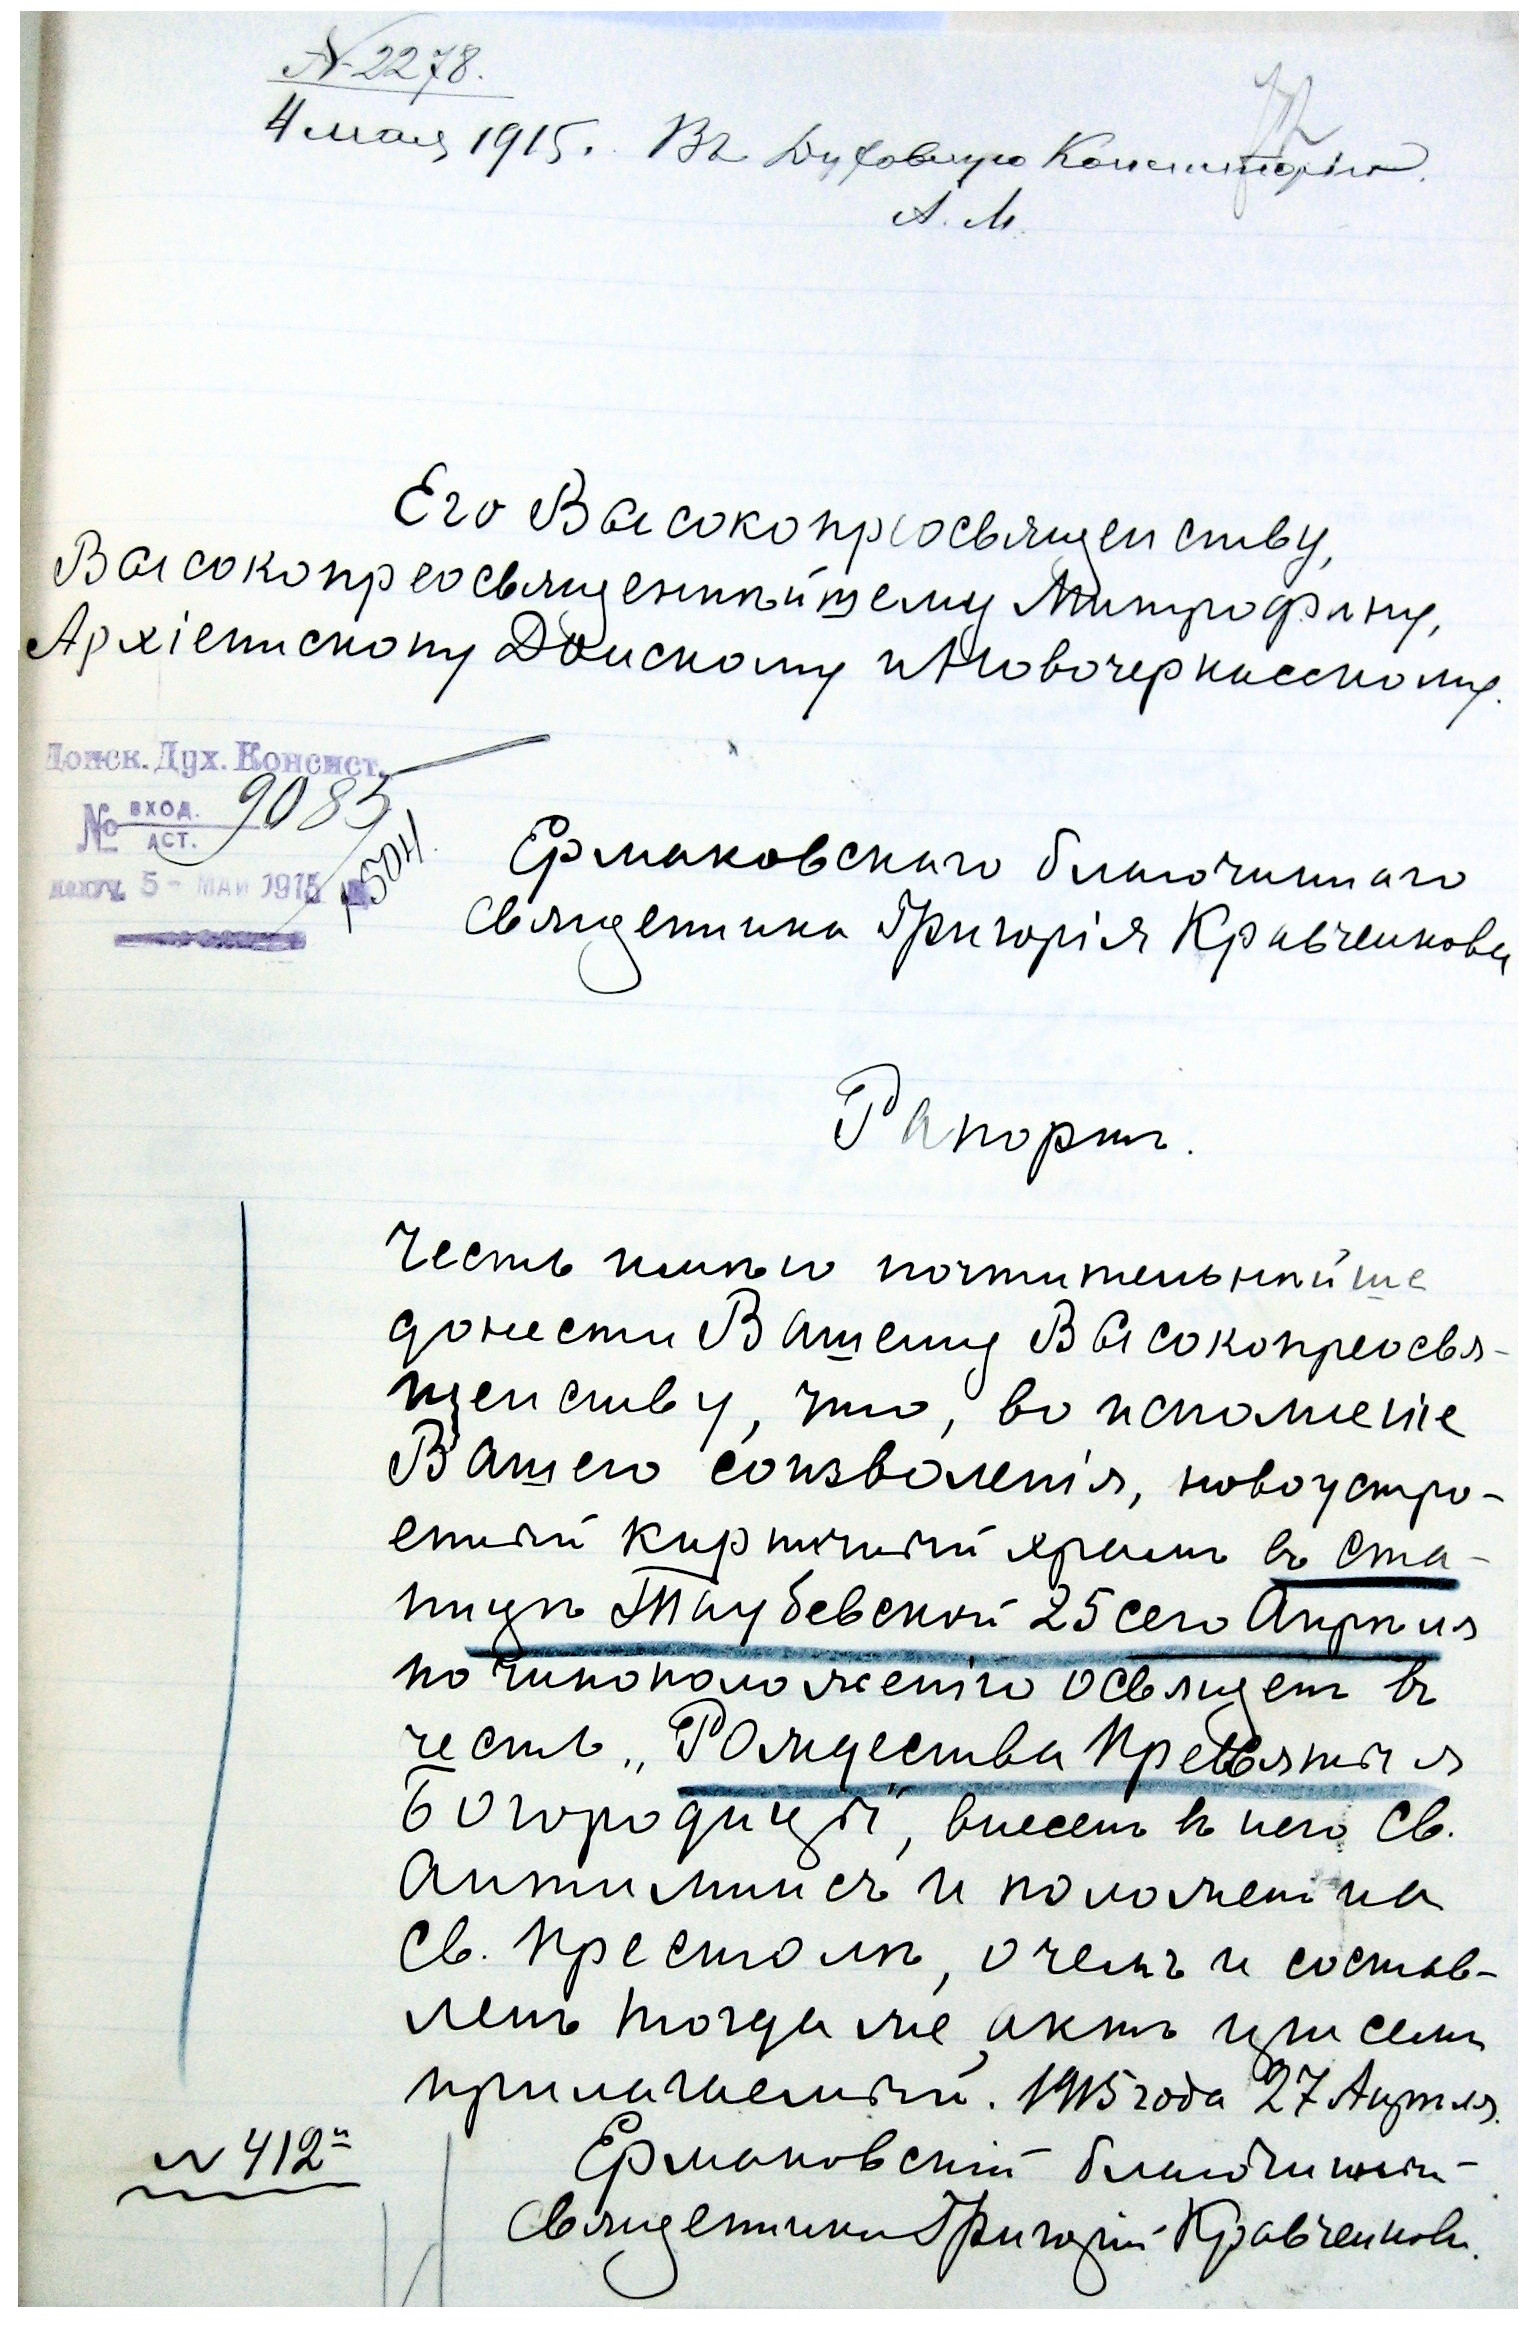 № 2278.
4 мая 1915. Въ Духовную Консисторію.
А. М.
Его Высокопреосвященству,
Высокопреосвященнѣйшему Митрофану,
Архіепископу Донскому и Новочеркасскому.
Донск. Дух. Консист.
№ ВХОД. 9085
АСТ.
5 - МАЙ 1915
Ермаковскаго благочиннаго
священника Григорія Кравченкова
Рапортъ.
Честь имѣю почтительнѣйше
донести Вашему Высокопреосвя-
щенству, что, во исполненіе
Вашего соизволенія, новоустро-
енный кирпичный храмъ въ ста-
ницѣ Таубевской 25 сего Апрѣля
по чиноположенію освященъ въ
честь „Рождества Пресвятыя
Богородицы", внесенъ въ него Св.
Антиминсъ и положенъ на
Св. Престолѣ, о чемъ и состав-
ленъ тогда же актъ при семъ
прилагаемый. 1915 года 27 Апрѣля.
№ 412й
Ермаковскій благочинный
священникъ Григорій Кравченковъ.